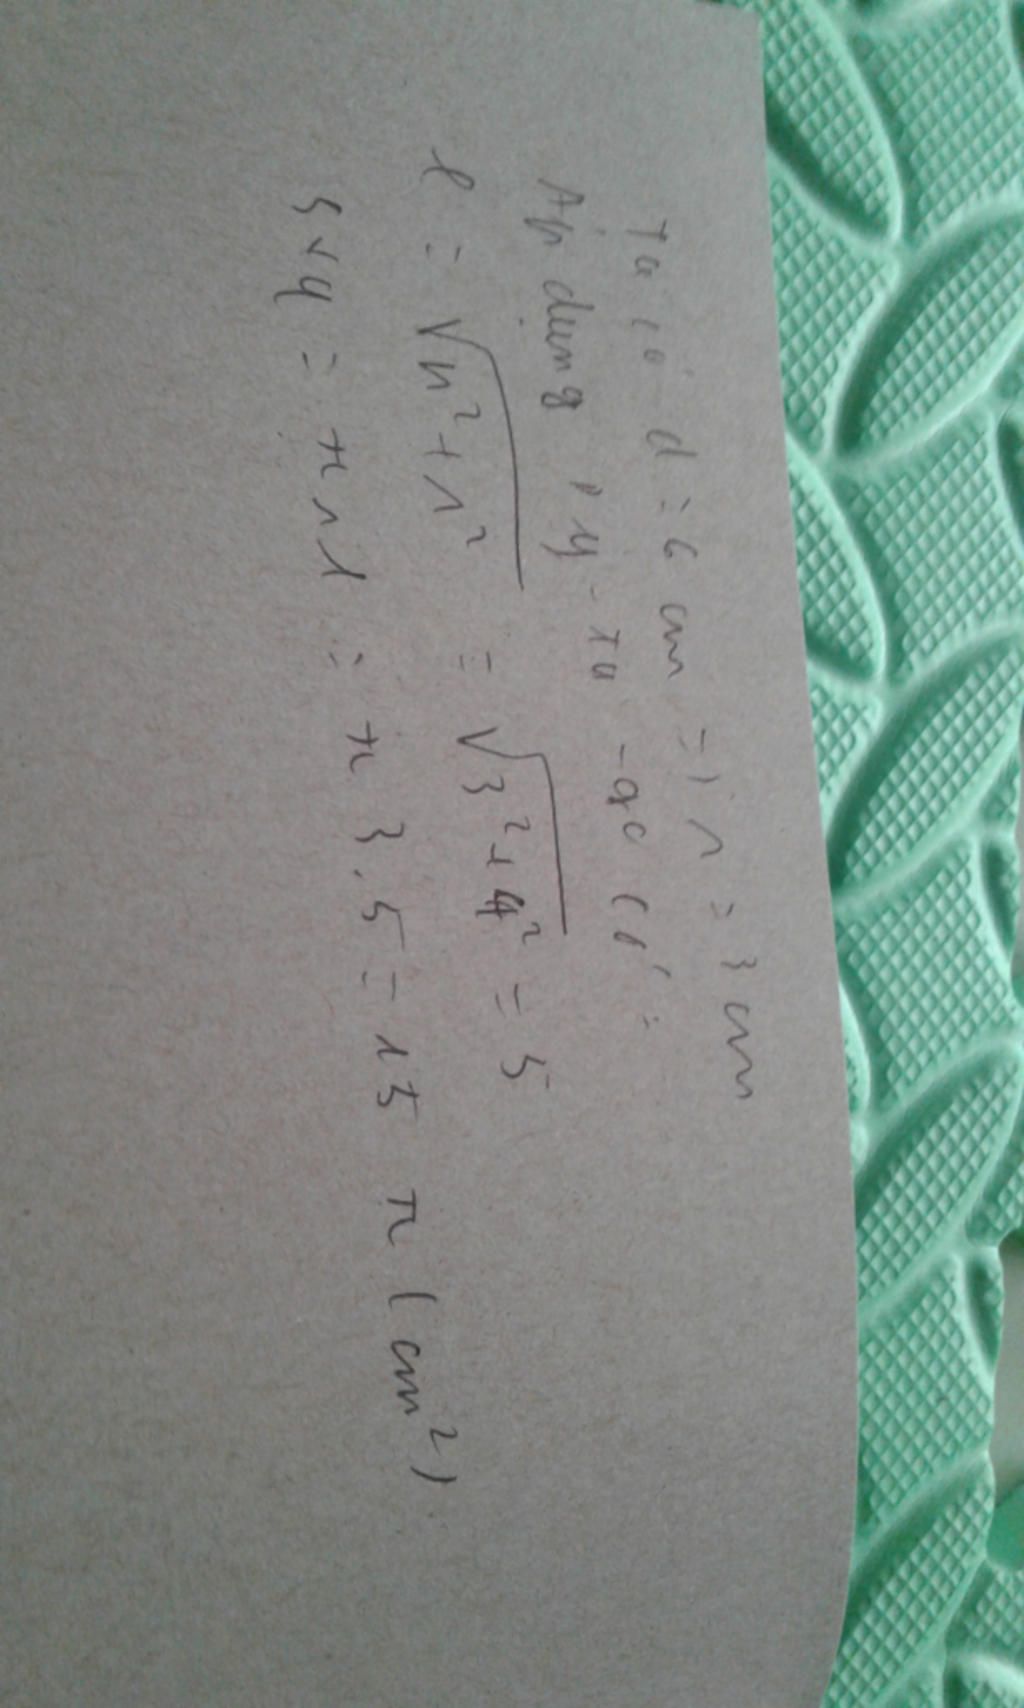 Ta có d = 6 cm => r = 3 cm
Áp dụng Py-ta-go có:
l = √h² + r² = √3² + 4² = 5
Sxq = π r l = π 3.5 = 15 π (cm²)